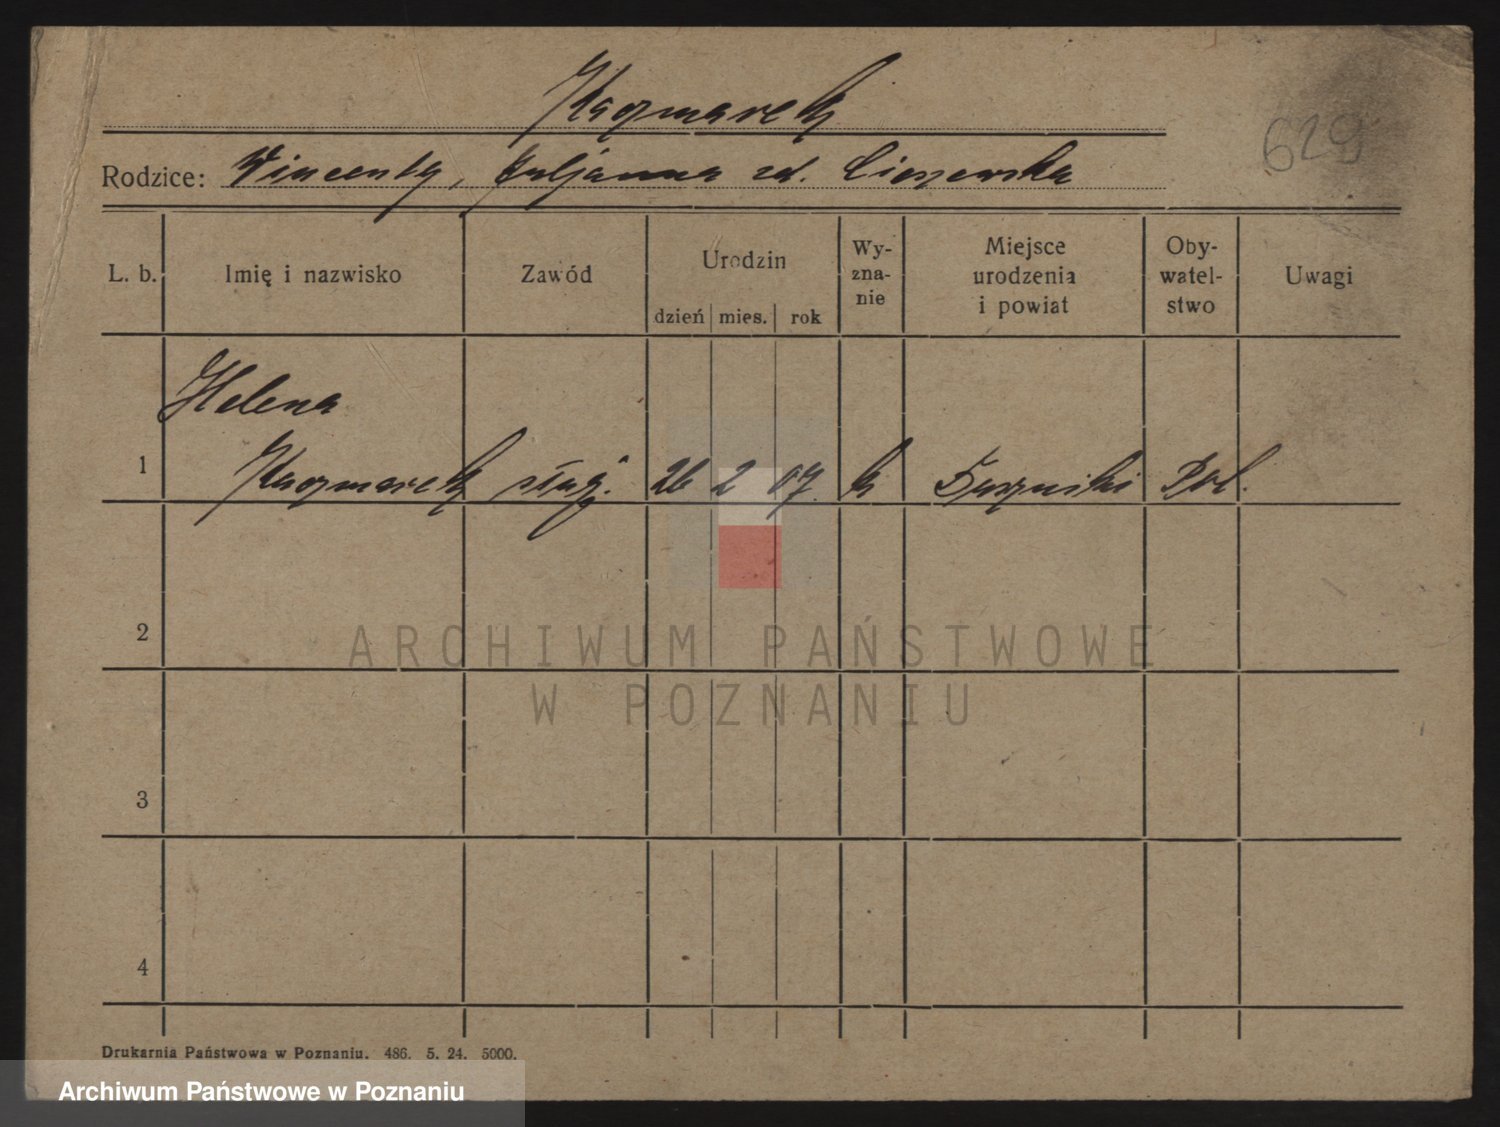 Kaczmarek
629
Rodzice: Wincenty, Juljanna zd. Cieszewska
L. b. Imię i nazwisko Zawód Urodzin dzień mies. rok Wy-zna-nie Miejsce urodzenia i powiat Oby-watel-stwo Uwagi
Helena
1 Kaczmarek służ. 26 2 07. k Pol.
2
ARCHIWUM PAŃSTWOWE
W POZNANIU
3
4
Drukarnia Państwowa w Poznaniu. 486. 5. 24. 5000.
Archiwum Państwowe w Poznaniu